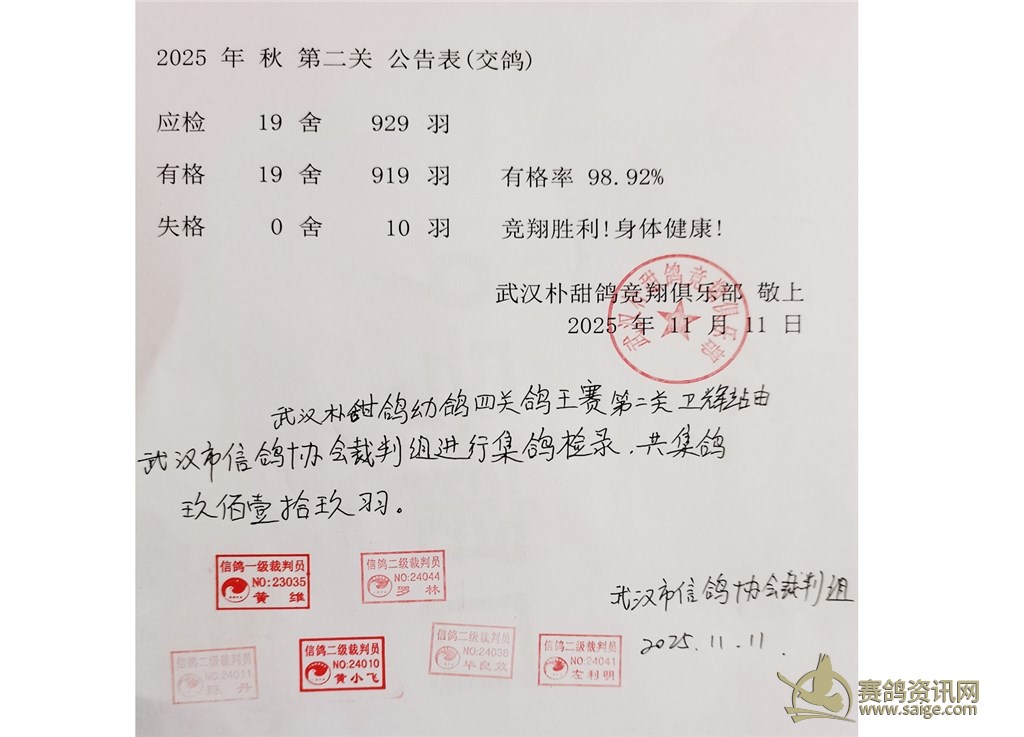 2025 年 秋 第二关 公告表(交鸽)
应检 19 舍 929 羽
有格 19 舍 919 羽 有格率 98.92%
失格 0 舍 10 羽 竞翔胜利!身体健康!
武汉朴甜鸽竞翔俱乐部 敬上
2025 年 11 月 11 日
武汉朴甜鸽竞翔俱乐部
武汉朴甜鸽幼鸽四关鸽王赛第二关卫辉站由
武汉市信鸽协会裁判组进行集鸽检录.共集鸽
玖佰壹拾玖羽。
信鸽一级裁判员
NO:23035
黄 维
信鸽二级裁判员
NO:24044
罗 林
武汉市信鸽协会裁判组
2025.11.11.
信鸽二级裁判员
NO:24011
陈 丹
信鸽二级裁判员
NO:24010
黄小飞
信鸽二级裁判员
NO:24038
信鸽二级裁判员
NO:24041
左利明
赛鸽资讯网
www.saige.com